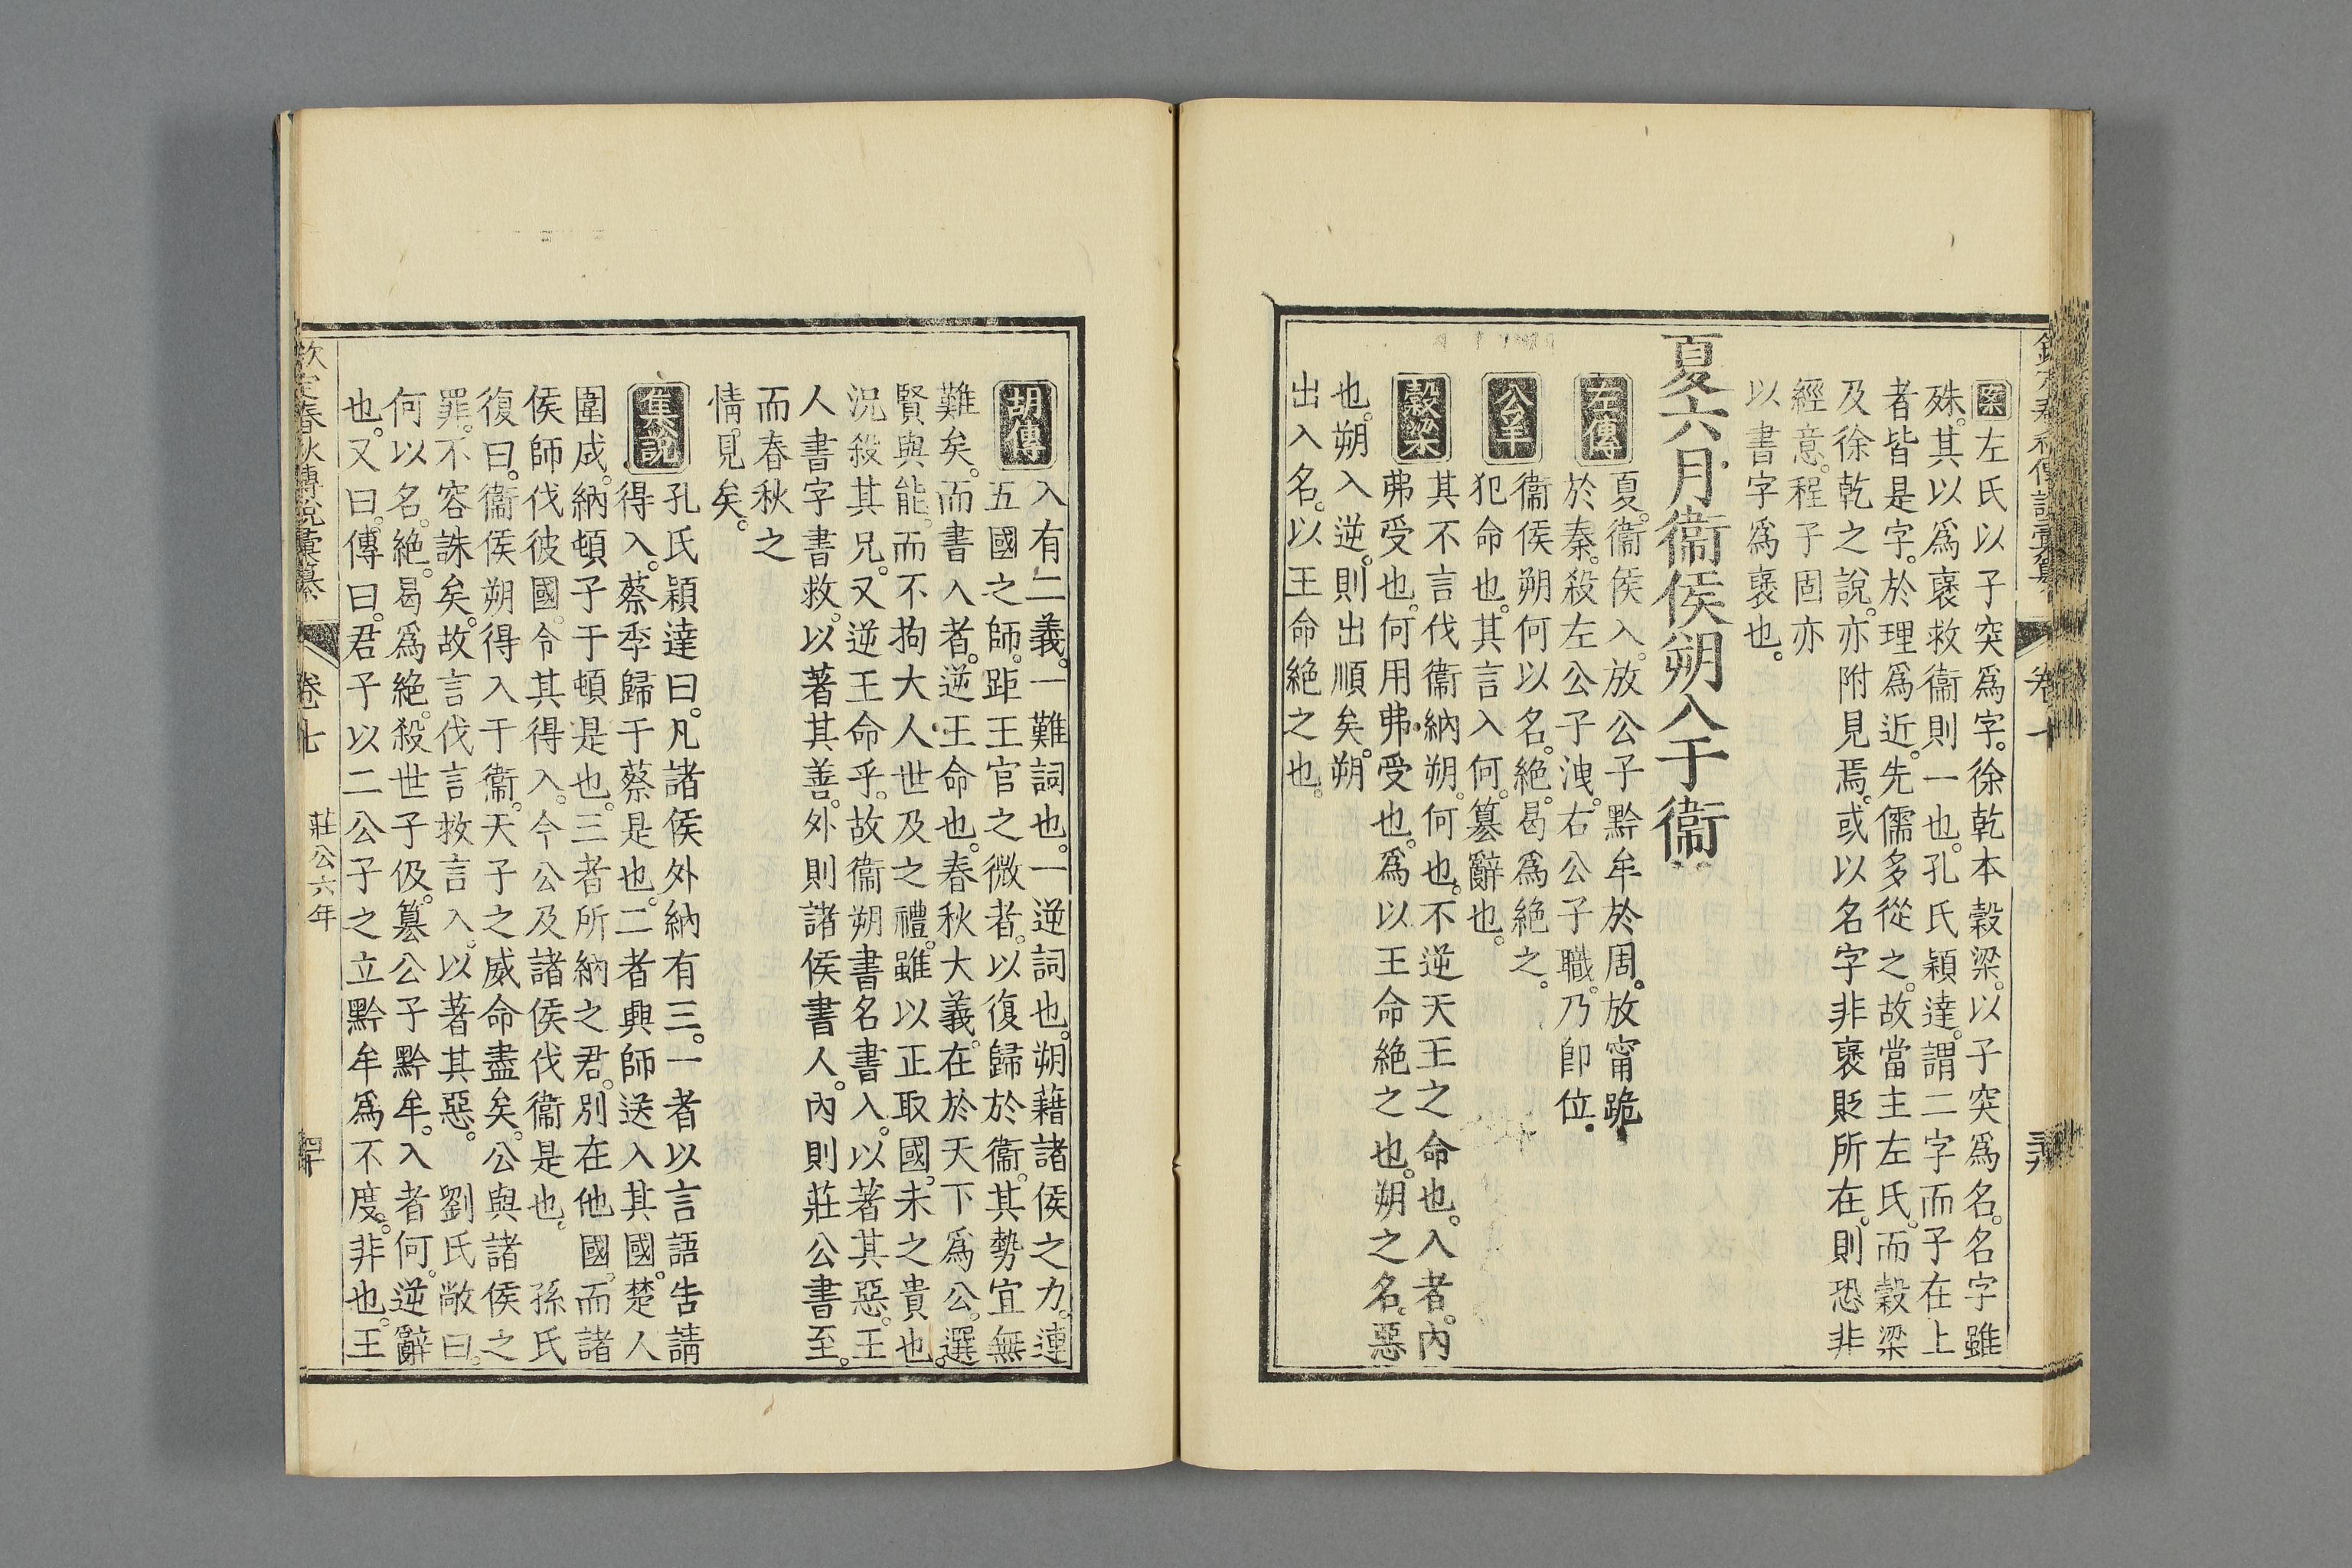 案左氏以子突爲字。徐乾本穀梁。以子突爲名。名字雖
殊。其以爲襃救衞則一也。孔氏穎達。謂二字而子在上
者皆是字。於理爲近。先儒多從之。故當主左氏。而穀梁
及徐乾之說。亦附見焉。或以名字非襃貶所在。則恐非
經意。程子固亦
以書字爲襃也。
夏六月衞侯朔入于衞
左傳 夏。衞侯入。放公子黔牟於周。放甯跪
於秦。殺左公子洩。右公子職。乃卽位。
公羊 衞侯朔何以名。絕。曷爲絕之。
犯命也。其言入何。篡辭也。
穀梁 其不言伐衞納朔。何也。不逆天王之命也。入者。內
弗受也。何用弗受也。爲以王命絕之也。朔之名。惡
也。朔入逆。則出順矣。朔
出入名。以王命絕之也。
胡傳 入有二義。一難詞也。一逆詞也。朔藉諸侯之力。連
五國之師。距王官之微者。以復歸於衞。其勢宜無
難矣。而書入者。逆王命也。春秋大義。在於天下爲公。選
賢與能。而不拘大人世及之禮。雖以正取國。未之貴也。
況殺其兄。又逆王命乎。故衞朔書名書入。以著其惡。王
人書字書救。以著其善。外則諸侯書人。內則莊公書至。
而春秋之
情見矣。
集說 孔氏穎達曰。凡諸侯外納有三。一者以言語告請
得入。蔡季歸于蔡是也。二者興師送入其國。楚人
圍成。納頓子于頓是也。三者所納之君。別在他國。而諸
侯師伐彼國。令其得入。今公及諸侯伐衞是也。 孫氏
復曰。衞侯朔得入于衞。天子之威命盡矣。公與諸侯之
罪。不容誅矣。故言伐言救言入。以著其惡。 劉氏敞曰。
何以名。絕。曷爲絕。殺世子伋。篡公子黔牟。入者何。逆辭
也。又曰。傳曰。君子以二公子之立黔牟爲不度。非也。王
欽定春秋傳說彙纂 卷七 莊公六年 四十